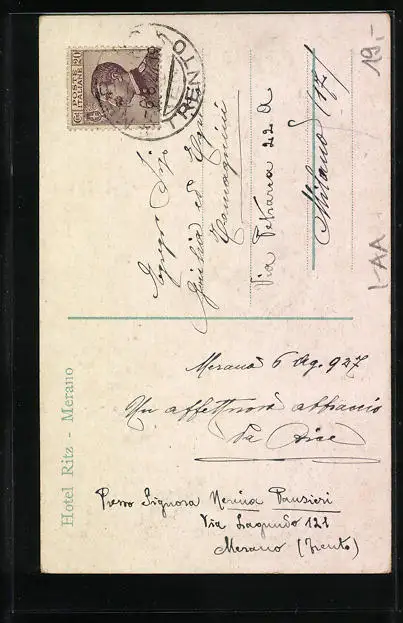 POSTE ITALIANE
C. 20
RENTO
Giulia ed
Via Petrarca 22 A
Milano (17)
19.-
I-AA
Hotel Ritz - Merano
Merano 6 Ag. 927
Un affettuoso abbraccio
da
Presso Signora Nerina Pansieri
Via Lagundo 121
Merano (Trento)